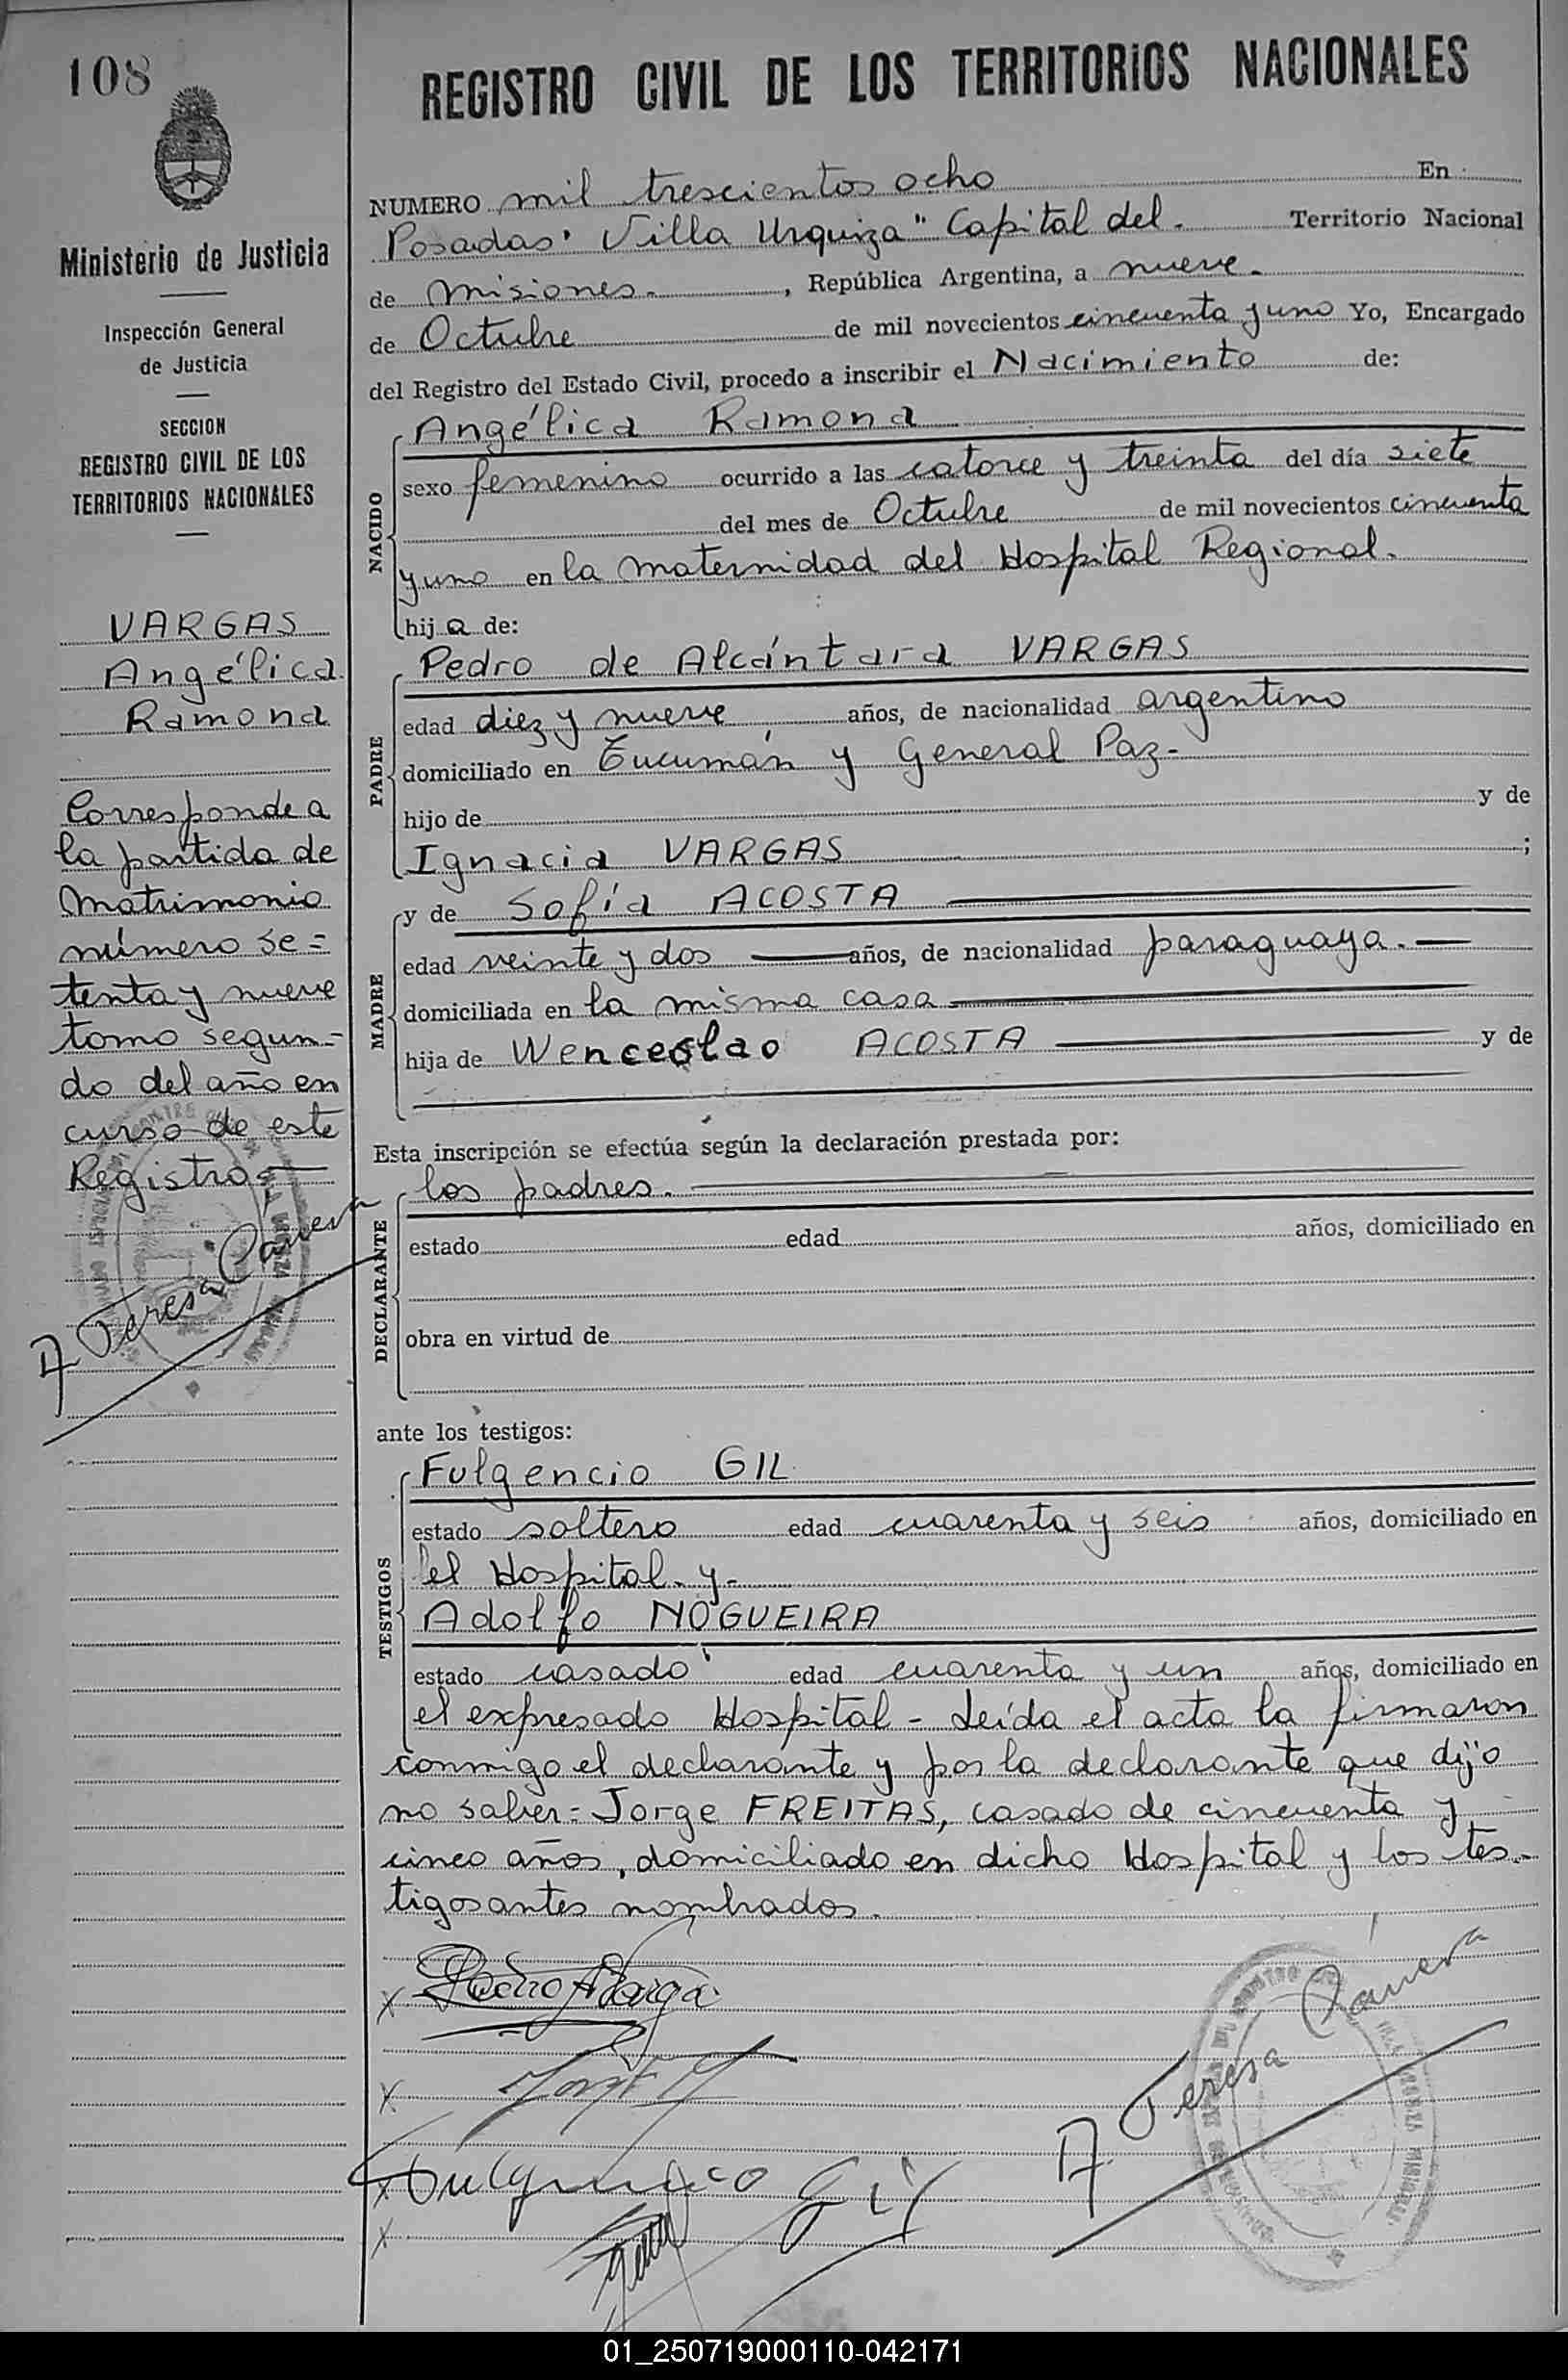 108
Ministerio de Justicia
Inspección General
de Justicia
SECCION
REGISTRO CIVIL DE LOS
TERRITORIOS NACIONALES
VARGAS
Angélica
Ramona
Corresponde a
la partida de
Matrimonio
número se=
tenta y nueve
tomo segun=
do del año en
curso de este
Registro
A Teresa
REGISTRO CIVIL DE LOS TERRITORIOS NACIONALES
NUMERO mil trescientos ocho En
Posadas "Villa Urquiza" Capital del. Territorio Nacional
de Misiones. , República Argentina, a nueve.
de Octubre de mil novecientos cincuenta y uno Yo, Encargado
del Registro del Estado Civil, procedo a inscribir el Nacimiento de:
NACIDO
Angélica Ramona
sexo femenino ocurrido a las catorce y treinta del día siete
del mes de Octubre de mil novecientos cincuenta
y uno en la Maternidad del Hospital Regional.
hija de:
PADRE
Pedro de Alcántara VARGAS
edad diez y nueve años, de nacionalidad argentino
domiciliado en Tucumán y General Paz-
hijo de y de
Ignacia VARGAS ;
MADRE
y de Sofía ACOSTA
edad veinte y dos años, de nacionalidad paraguaya.
domiciliada en la misma casa
hija de Wenceslao ACOSTA y de
Esta inscripción se efectúa según la declaración prestada por:
DECLARANTE
los padres.
estado edad años, domiciliado en
obra en virtud de
ante los testigos:
TESTIGOS
Fulgencio GIL
estado soltero edad cuarenta y seis años, domiciliado en
el Hospital. y-
Adolfo NOGUEIRA
estado casado edad cuarenta y un años, domiciliado en
el expresado Hospital - Leída el acta la firmaron
conmigo el declarante y por la declarante que dijo
no saber= Jorge FREITAS, casado de cincuenta y
cinco años, domiciliado en dicho Hospital y los tes-
tigos antes nombrados.
X Pedro A Varga
X
X Fulgencio Gil
X
A Teresa
01_250719000110-042171